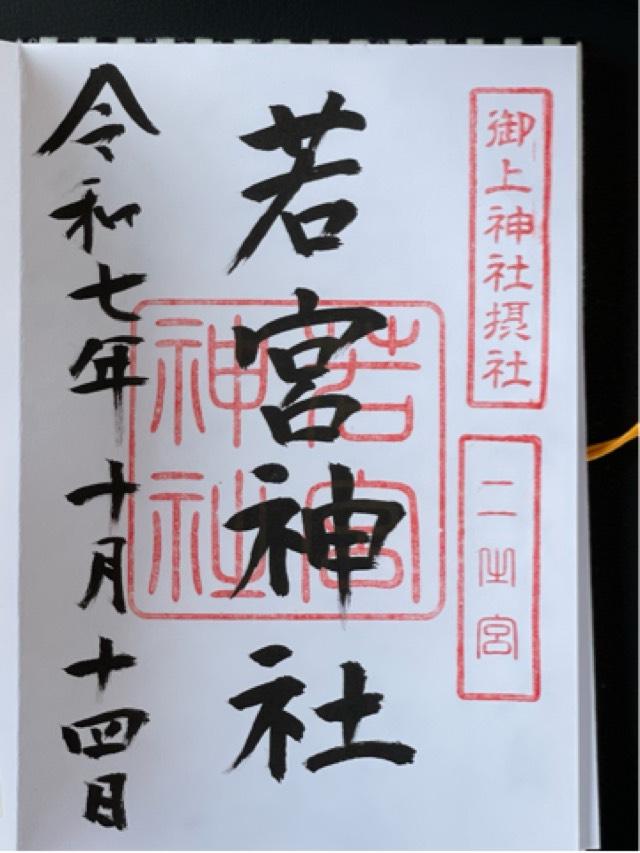 御上神社摂社
二之宮
若宮神社
若宮
神社
令和七年十月十四日